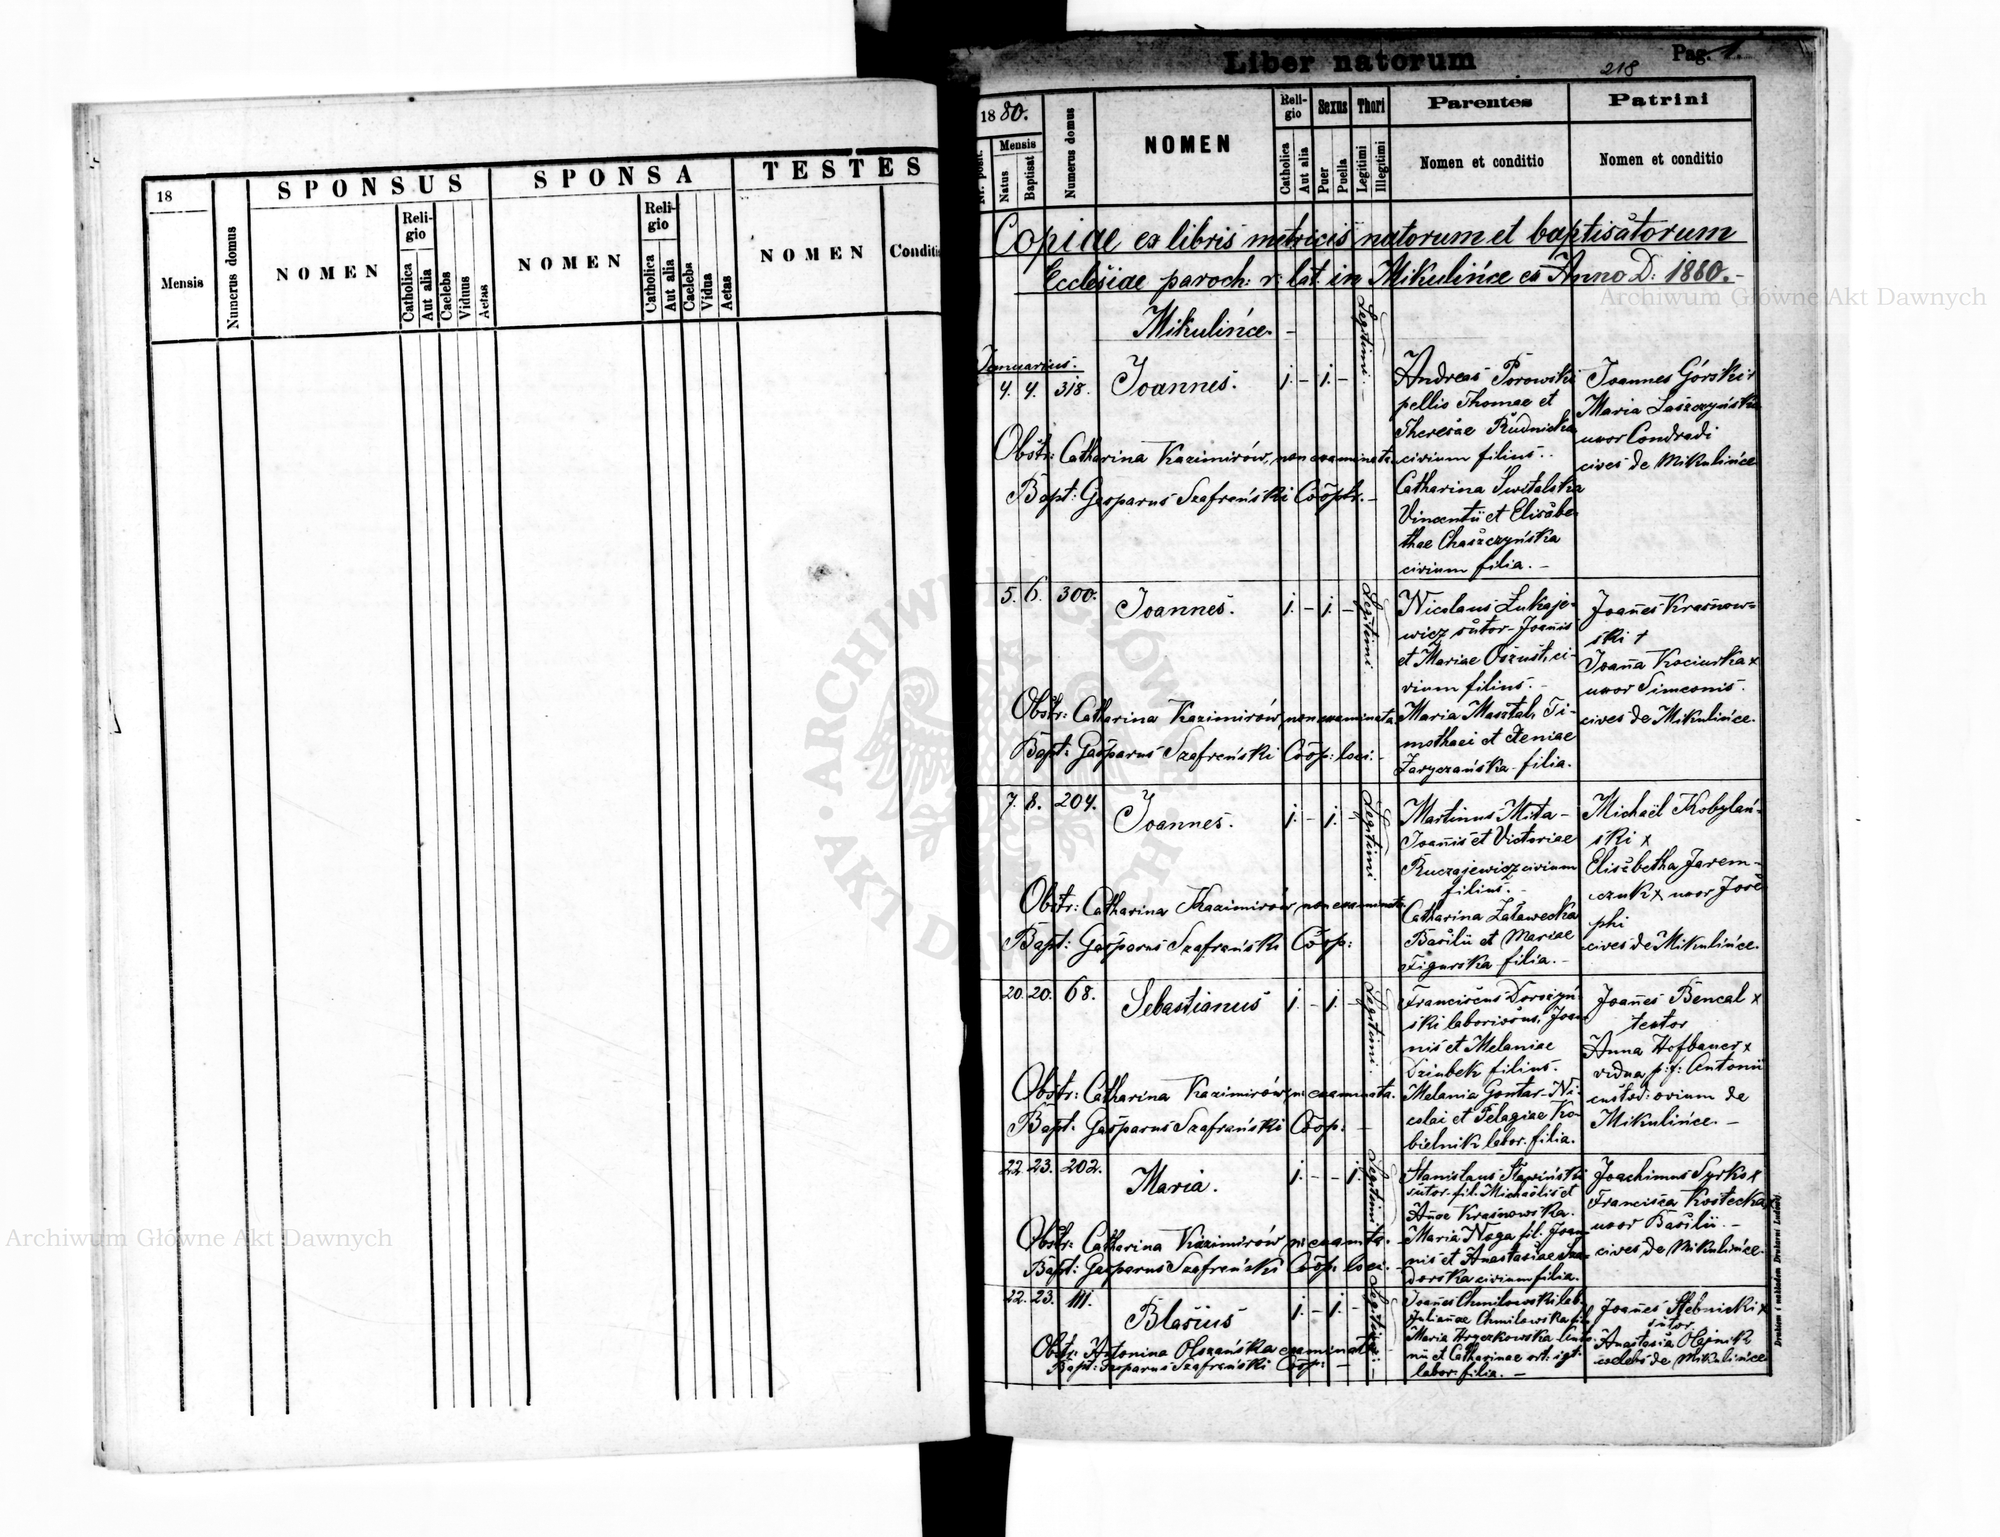 18
Mensis
Numerus domus
SPONSUS
NOMEN
Religio
Catholica
Aut alia
Caelebs
Viduus
Aetas
SPONSA
NOMEN
Religio
Catholica
Aut alia
Caelebs
Vidua
Aetas
TESTES
NOMEN
Conditi
Liber natorum
Pag. 1.
218
1880.
Nr. posit.
Mensis
Natus
Baptisat
Numerus domus
NOMEN
Religio
Catholica
Aut alia
Sexus
Puer
Puella
Thori
Legitimi
Illegitimi
Parentes
Nomen et conditio
Patrini
Nomen et conditio
Copiae ex libris metricis natorum et baptisatorum
Ecclesiae paroch: r: lat: in Mikulińce ex Anno D: 1880.-
Mikulińce. -
Januarius.
4. 4. 318. Joannes. 1. - 1. - Legitimi. -
Andreas Porowski
pellio Thomae et
Theresae Rudnicka
civium filius. -
Catharina Świtalska
Vincentii et Elisabe-
thae Chaszczyńska
civium filia. -
Joannes Górski +
Maria Łaszczyńska
uxor Condradi
cives de Mikulińce
Obstr: Catharina Kazimirów, non examinata.
Bapt: Gasparus Szafrański Cooptr. -
5. 6. 300. Joannes. 1. - 1. - Legitimi.
Nicolaus Łukaje-
wicz sutor - Joannis
et Mariae Oszust, ci-
vium filius. -
Maria Masztal, Ti-
mothaei et Xeniae
Zaryczańska filia.
Joannes Krasnow-
ski +
Joanna Kociurka x
uxor Simeonis.
cives de Mikulińce.
Obstr: Catharina Kazimirów, non examinata.
Bapt: Gasparus Szafrański Coop: loci. -
7. 8. 204. Joannes. 1. - 1. - Legitimi
Martinus Mita -
Joannis et Victoriae
Ruczajewicz civium
filius. -
Catharina Załawecka
Basilii et Mariae
Figurska filia. -
Michaël Kobylań-
ski x
Elisabetha Jarem-
czuk x uxor Jose-
phi
cives de Mikulińce.
Obstr: Catharina Kazimirów non examinata.
Bapt: Gasparus Szafrański Coop:
20. 20. 68. Sebastianus 1. - 1. - Legitimi.
nis et Melaniae
Dziubek filius.
Melania Gontar - Ni-
colai et Pelagiae Ko-
bielnik labor. filia.
Joannes Bencal x
textor
Anna Hofbauer x
vidua p: f: Antonii
custod: ovium de
Mikulińce. -
Obstr: Catharina Kazimirów, n: examinata.
Bapt. Gasparus Szafrański Coop: -
22. 23. 202. Maria. 1. - - 1. Legitimi
sutor - fil. Michaëlis et
Annae Krasnowska.
Maria Noga fil. Joan-
nis et Anastasiae
civium filia.
Joachimus Syrko x
Francisca Kostecka
uxor Basilii. -
cives de Mikulińce.
Obstr: Catharina Kazimirów, n: examta. -
Bapt: Gasparus Szafrański Coop: loci. -
22. 23. 111. Blasius 1. - 1. - Legitimi
Joannes Chmilowski lab.
Julianae Chmilowska fil.
Maria Hryczkowska
nii et Catharinae
labor: filia. -
Joannes Stebnicki x
sutor.
Anastasia Olejnik
caelebs de Mikulińce
Obstr: Antonina Olszańska examinata. -
Bapt: Gasparus Szafrański Coop: -
Drukiem i nakładem Drukarni Ludowej
Archiwum Główne Akt Dawnych
Archiwum Główne Akt Dawnych
ARCHIWUM GŁÓWNE AKT DAWNYCH